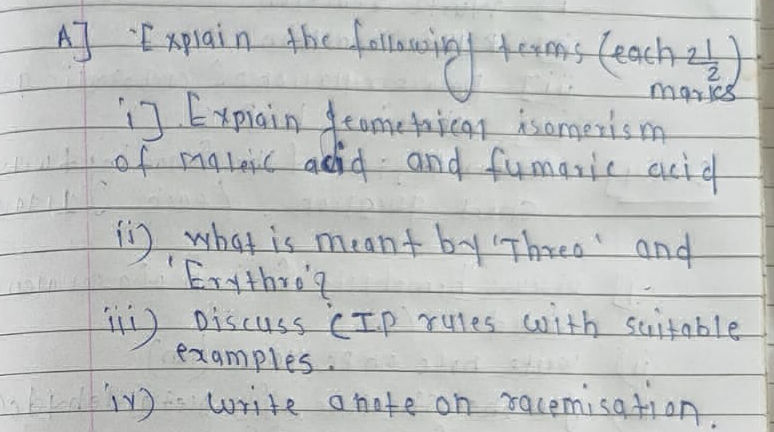 A] Explain the following terms (each 2 1/2)
marks
i] Explain geometrical isomerism
of maleic acid and fumaric acid
ii) what is meant by 'Threo' and
'Erythro'?
iii) Discuss CIP rules with suitable
examples.
iv) write a note on racemisation.